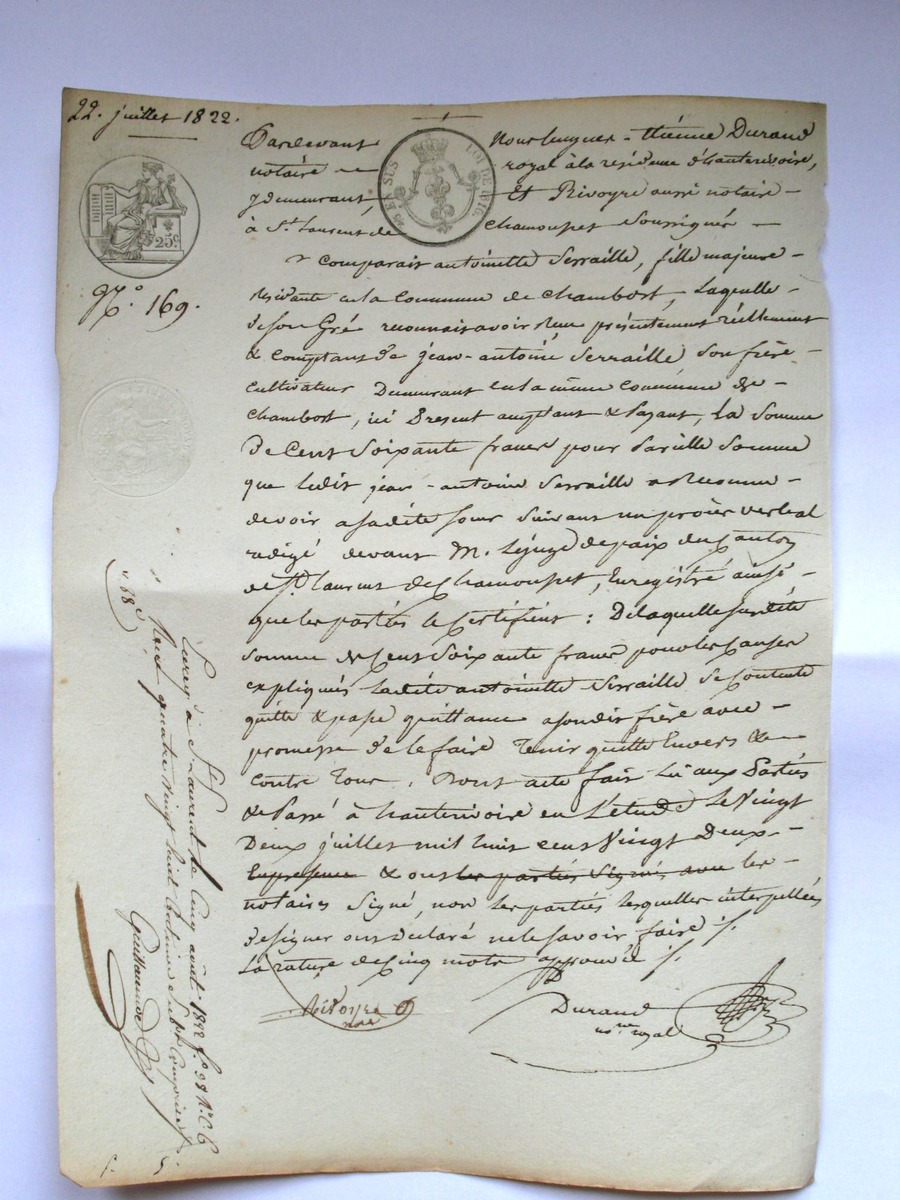 22. juillet 1822.
Pardevant Nous hugues-etiénne Durand
notaire royal à la residence d'hauterivoire,
y demeurant, Et Rivoyre aussi notaire
à St. Laurent de Chamousset Soussignés
comparait antoinette Serraille, fille majeure
residante en la Commune de Chambost, Laquelle
de son Gré reconnait avoir Recu présentement réellement
& comptant de jean-antoine Serraille Son frère
cultivateur Demeurant en la même Commune de
chambost, ici Present acceptant & Payant, La Somme
De Cent Soixante francs pour Pareille Somme
que Ledit jean-antoine Serraille a Reconnu
devoir a sadite Sœur Suivant un procès verbal
redigé devant M. Le juge de paix du Canton
de St. Laurent de Chamousset, Enregistré ainsi
que les parties le Certifient : De laquelle susdite
somme de Cent Soixante francs pour les Causes
expliqués Ladite antoinette Serraille Se Contente
quitte & passe quittance a son dit frère avec
promesse de le faire Tenir quitte Envers &
contre Tous, Dont acte fait Lu aux Parties
& Passé à hauterivoire en L'etude Le Vingt
Deux juillet mil huit cent Vingt Deux
En presence & ont les parties Signés avec les
notaires Signé, non les parties lesquelles interpellées
de signer ont declaré ne le savoir faire ./.
La rature de Cinq mots approuvée ./.
Rivoyre
nre
Durand
nore. royal
25c.
25 EN SUS
LOI DE 1816.
No. 169.
Enreg. à St. Laurent le Cinq août 1822 f.o 98 Ro. C. 6
Reçu quatre vingt huit Centimes Subv. Comprise
88 c
Guillaumod